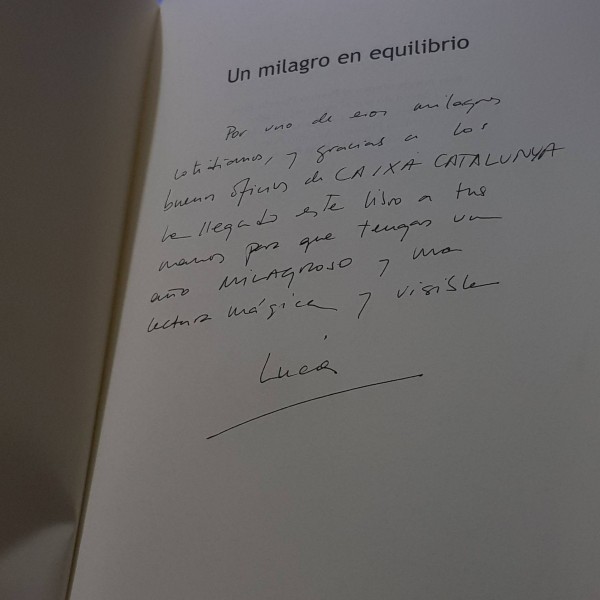 Un milagro en equilibrio
Por uno de esos milagros
cotidianos, y gracias a los
buenos oficios de CAIXA CATALUNYA
ha llegado este libro a tus
manos para que tengas un
año MILAGROSO y una
lectura mágica y visible
Lucía